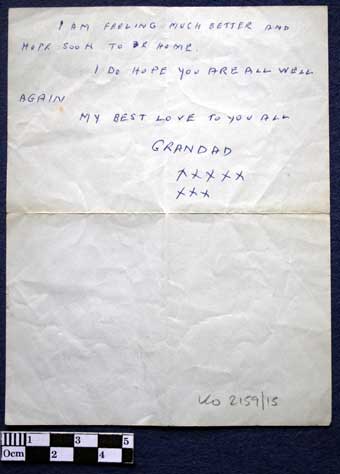 I AM FEELING MUCH BETTER AND
HOPE SOON TO BE HOME.
I DO HOPE YOU ARE ALL WELL
AGAIN
MY BEST LOVE TO YOU ALL
GRANDAD
XXXXX
XXX
KO 2159/15
1 3 5
0cm 2 4